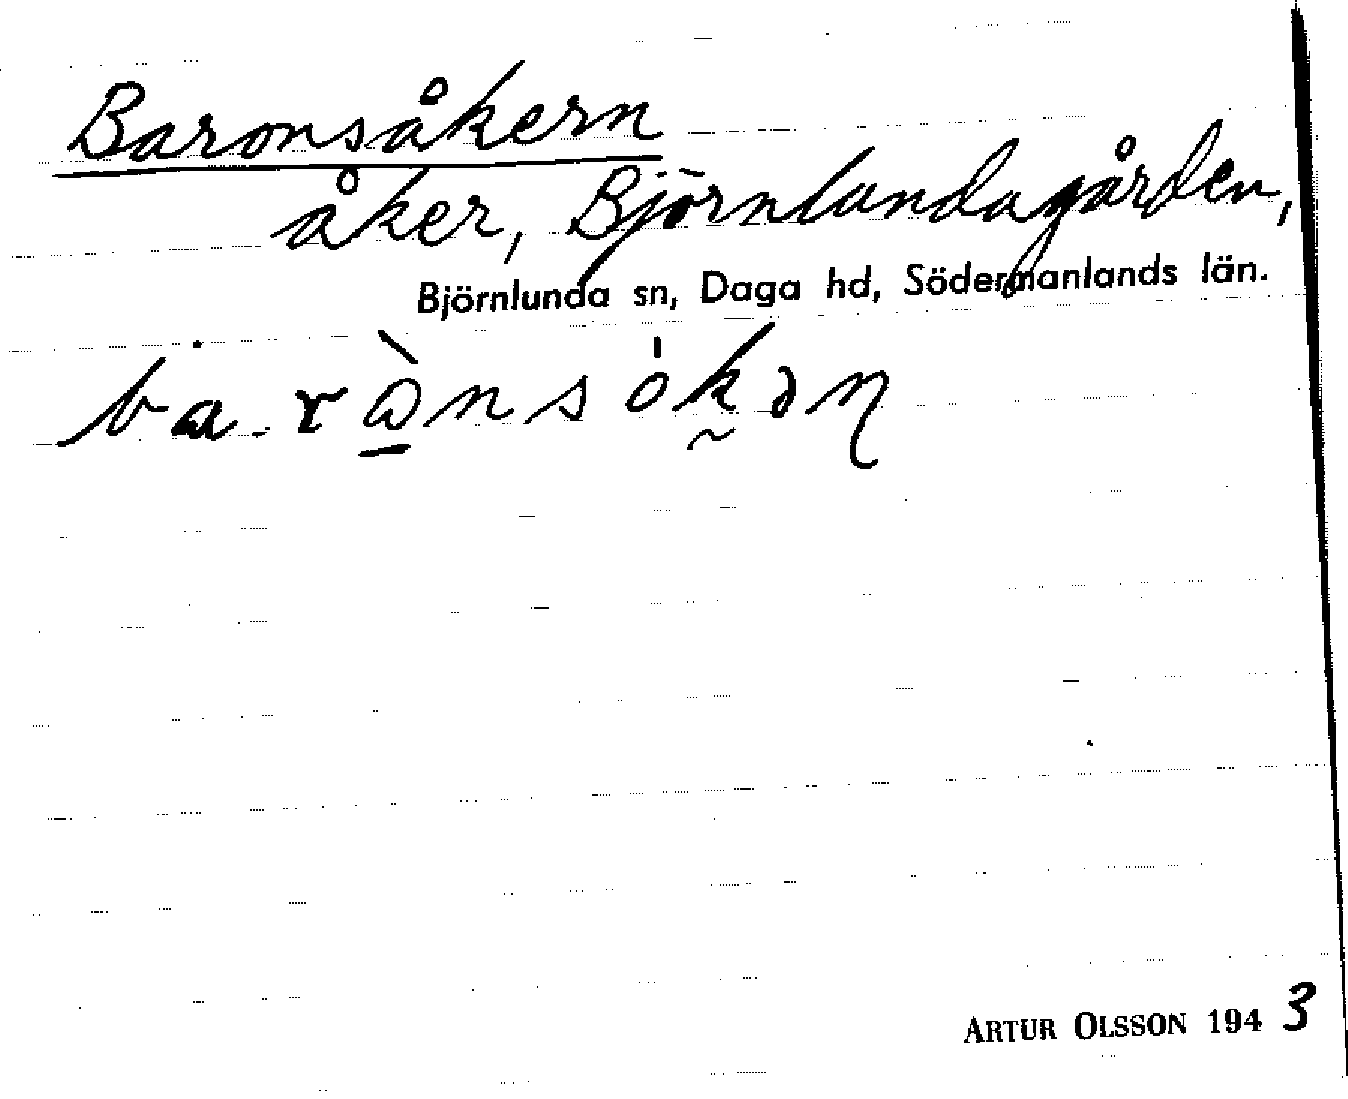 Baronsåkern
åker, Björnlundagården,
Björnlunda sn, Daga hd, Södermanlands län.
ARTUR OLSSON 1943